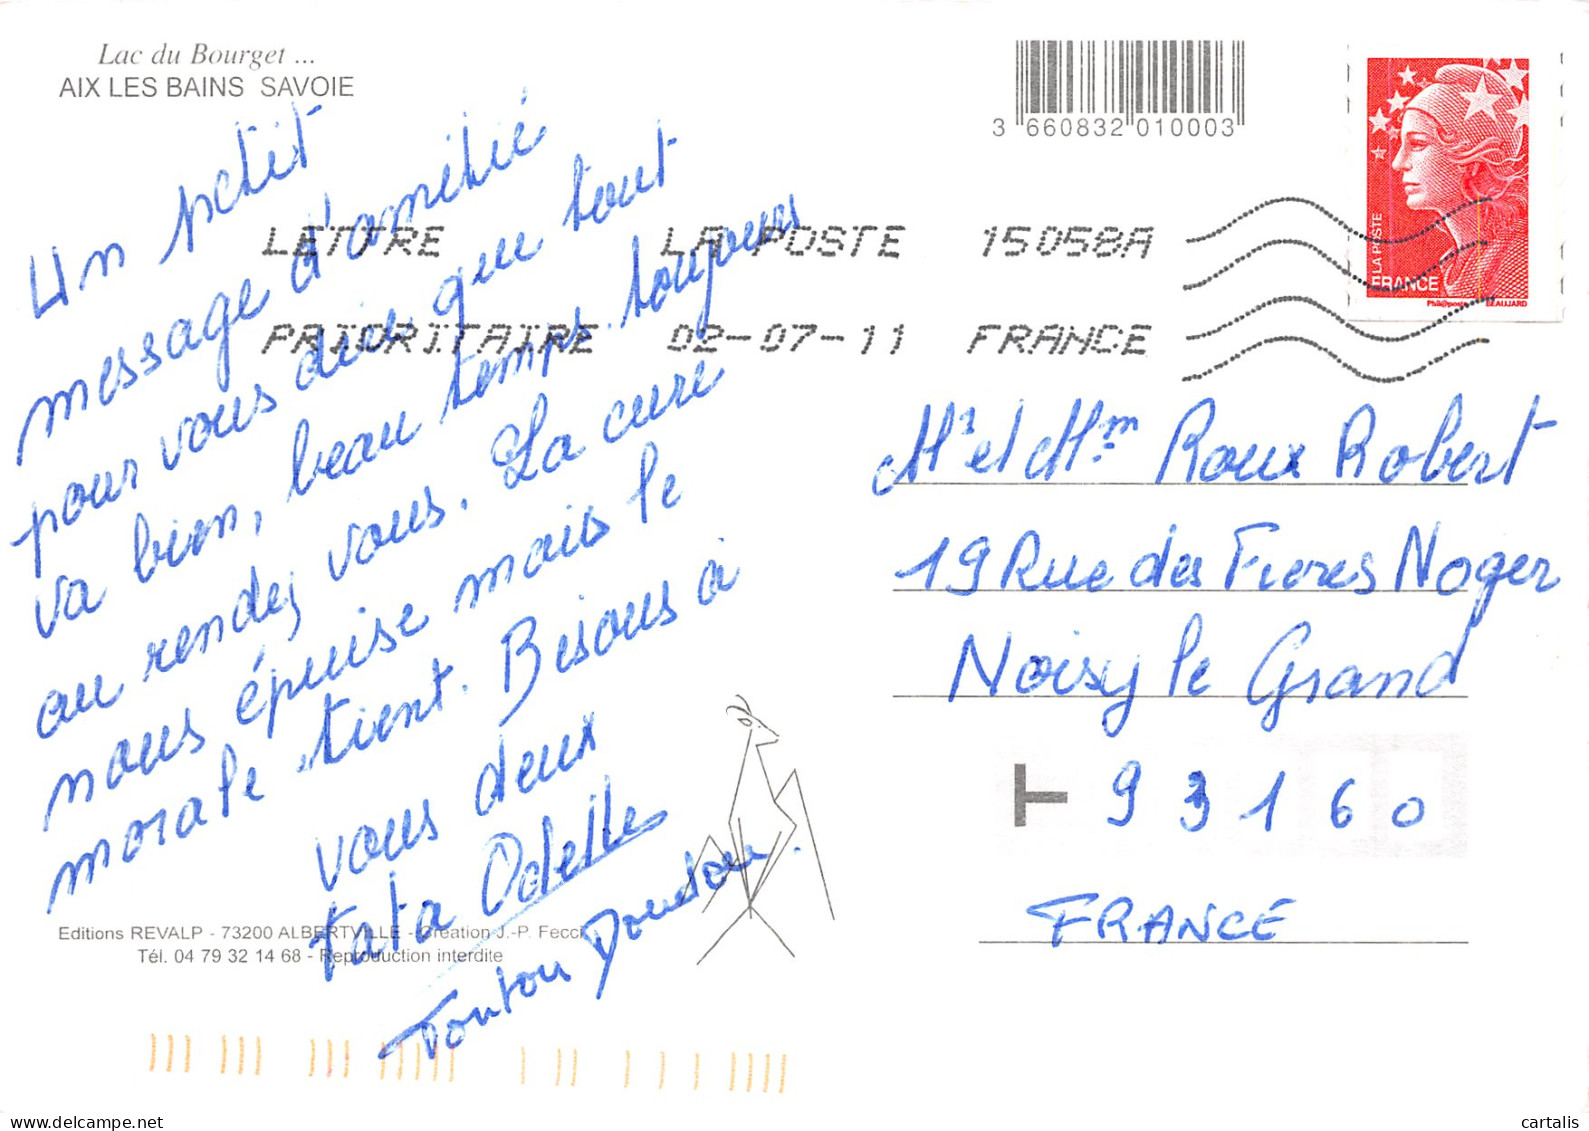 Lac du Bourget ...
AIX LES BAINS SAVOIE
3 660832 010003
LA POSTE
FRANCE
Phil@poste
BEAUJARD
LETTRE LA POSTE 15058A
PRIORITAIRE 02-07-11 FRANCE
Un petit
message d'amitié
pour vous dire que tout
va bien, beau temps toujours
au rendez vous. La cure
nous épuise mais le
morale tient. Bisous à
vous deux
tata Odette
Tonton Doudou.
Mr et Mm Roux Robert
19 Rue des Freres Noger
Noisy le Grand
93160
FRANCE
Editions REVALP - 73200 ALBERTVILLE - Création J.-P. Fecci
Tél. 04 79 32 14 68 - Reproduction interdite
cartalis